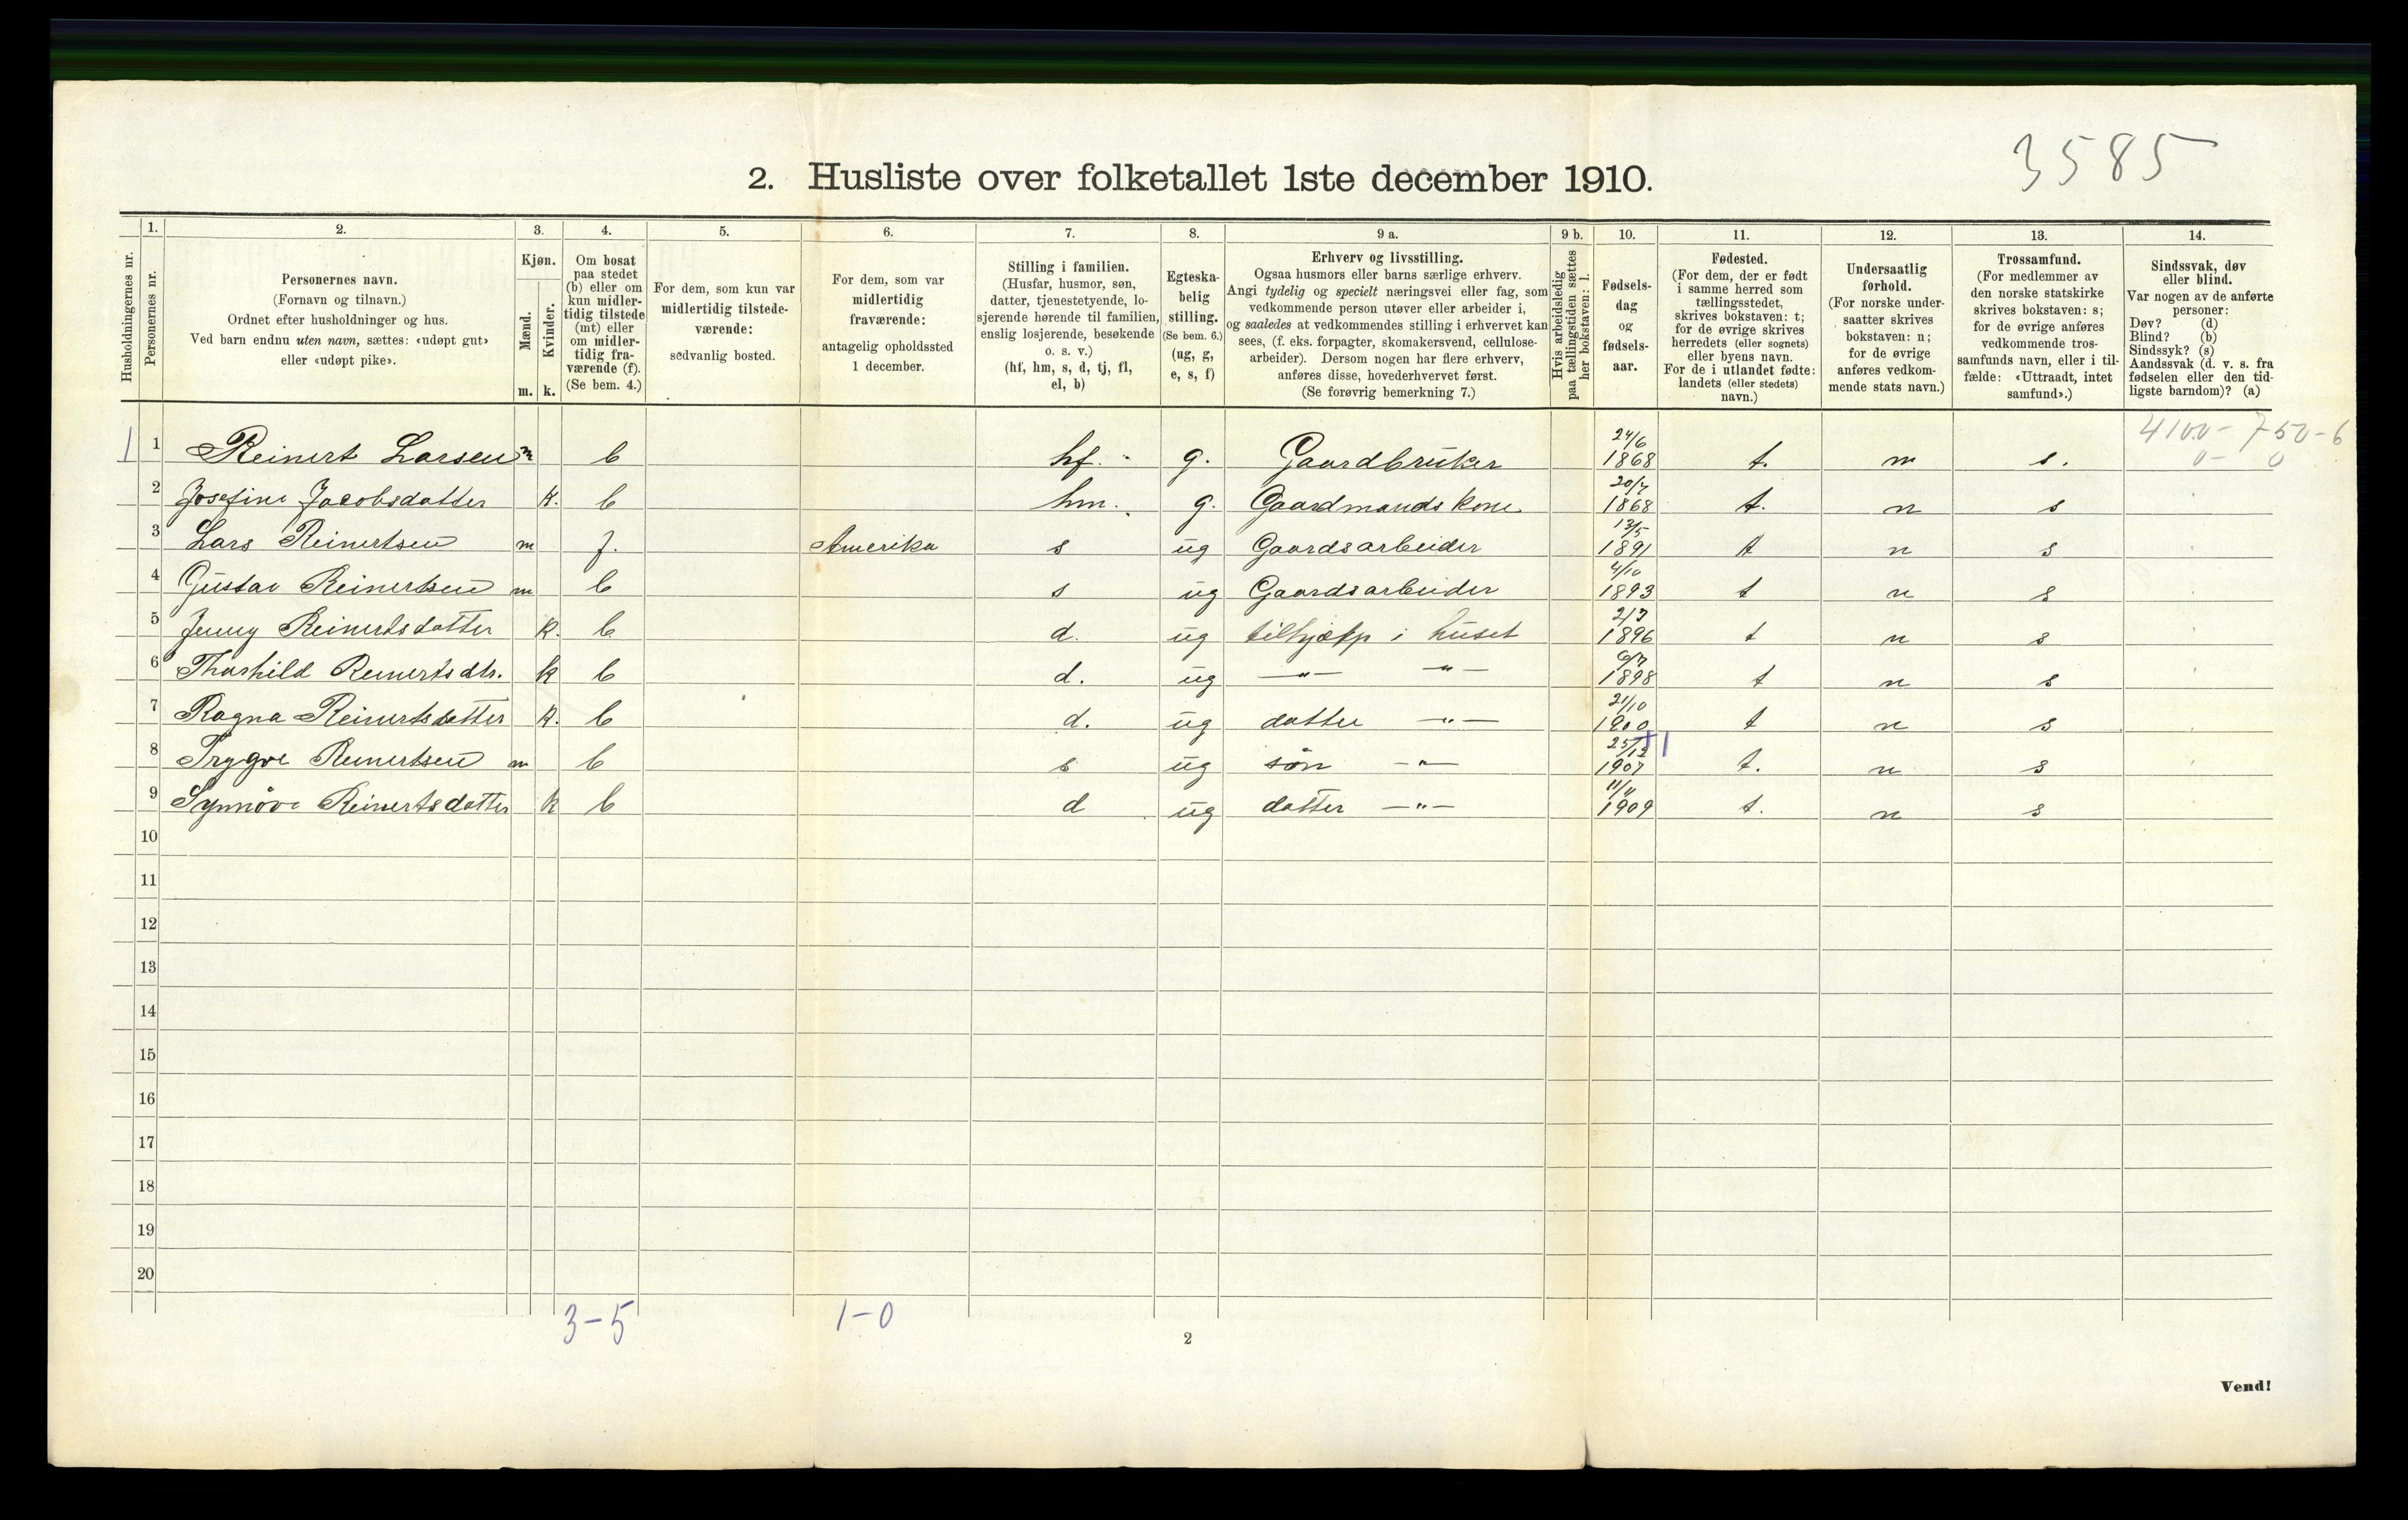 3585
2. Husliste over folketallet 1ste december 1910.
Husholdningernes nr.
1.
Personernes nr.
2.
Personernes navn.
(Fornavn og tilnavn.)
Ordnet efter husholdninger og hus.
Ved barn endnu uten navn, sættes: «udøpt gut»
eller «udøpt pike».
3.
Kjøn.
Mænd.
Kvinder.
m. k.
4.
Om bosat
paa stedet
(b) eller om
kun midler-
tidig tilstede
(mt) eller
om midler-
tidig fra-
værende (f).
(Se bem. 4.)
5.
For dem, som kun var
midlertidig tilstede-
værende:
sedvanlig bosted.
6.
For dem, som var
midlertidig
fraværende:
antagelig opholdssted
1 december.
7.
Stilling i familien.
(Husfar, husmor, søn,
datter, tjenestetyende, lo-
sjerende hørende til familien,
enslig losjerende, besøkende
o. s. v.)
(hf, hm, s, d, tj, fl,
el, b)
8.
Egteska-
belig
stilling.
(Se bem. 6.)
(ug, g,
e, s, f)
9 a.
Erhverv og livsstilling.
Ogsaa husmors eller barns særlige erhverv.
Angi tydelig og specielt næringsvei eller fag, som
vedkommende person utøver eller arbeider i,
og saaledes at vedkommendes stilling i erhvervet kan
sees, (f. eks. forpagter, skomakersvend, cellulose-
arbeider). Dersom nogen har flere erhverv,
anføres disse, hovederhvervet først.
(Se forøvrig bemerkning 7.)
9 b.
Hvis arbeidsledig
paa tællingstiden sættes
her bokstaven: l.
10.
Fødsels-
dag
og
fødsels-
aar.
11.
Fødested.
(For dem, der er født
i samme herred som
tællingsstedet,
skrives bokstaven: t;
for de øvrige skrives
herredets (eller sognets)
eller byens navn.
For de i utlandet fødte:
landets (eller stedets)
navn.)
12.
Undersaatlig
forhold.
(For norske under-
saatter skrives
bokstaven: n;
for de øvrige
anføres vedkom-
mende stats navn.)
13.
Trossamfund.
(For medlemmer av
den norske statskirke
skrives bokstaven: s;
for de øvrige anføres
vedkommende tros-
samfunds navn, eller i til-
fælde: «Uttraadt, intet
samfund».)
14.
Sindssvak, døv
eller blind.
Var nogen av de anførte
personer:
Døv? (d)
Blind? (b)
Sindssyk? (s)
Aandssvak (d. v. s. fra
fødselen eller den tid-
ligste barndom)? (a)
4100 - 750 - 6
0 - 0
1 1 Reinert Larsen m b hf. g. Gaardbruker 24/6 1868 t. n s.
2 Josefine Jacobsdatter k. b hm. g. Gaardmands kone 20/7 1868 t. n s
3 Lars Reinertsen m f. Amerika s ug Gaardsarbeider 13/5 1891 t n s
4 Gustav Reinertsen m b s ug Gaardsarbeider 4/10 1893 t n s
5 Jenny Reinertsdatter k. b d. ug tilhjælp i huset 2/3 1896 t n s
6 Thorhild Reinertsdtr. k b d. ug —"— —"— 1898 t n s
7 Ragna Reinertsdatter k. b d. ug datter —"— 21/10 1900 t n s
8 Trygve Reinertsen m b s ug søn —"— 25/12 1907 t. n s
9 Synnøve Reinertsdatter k b d ug datter —"— 11/11 1909 t. n s
10
11
12
13
14
15
16
17
18
19
20
3-5 1-0
2
Vend!